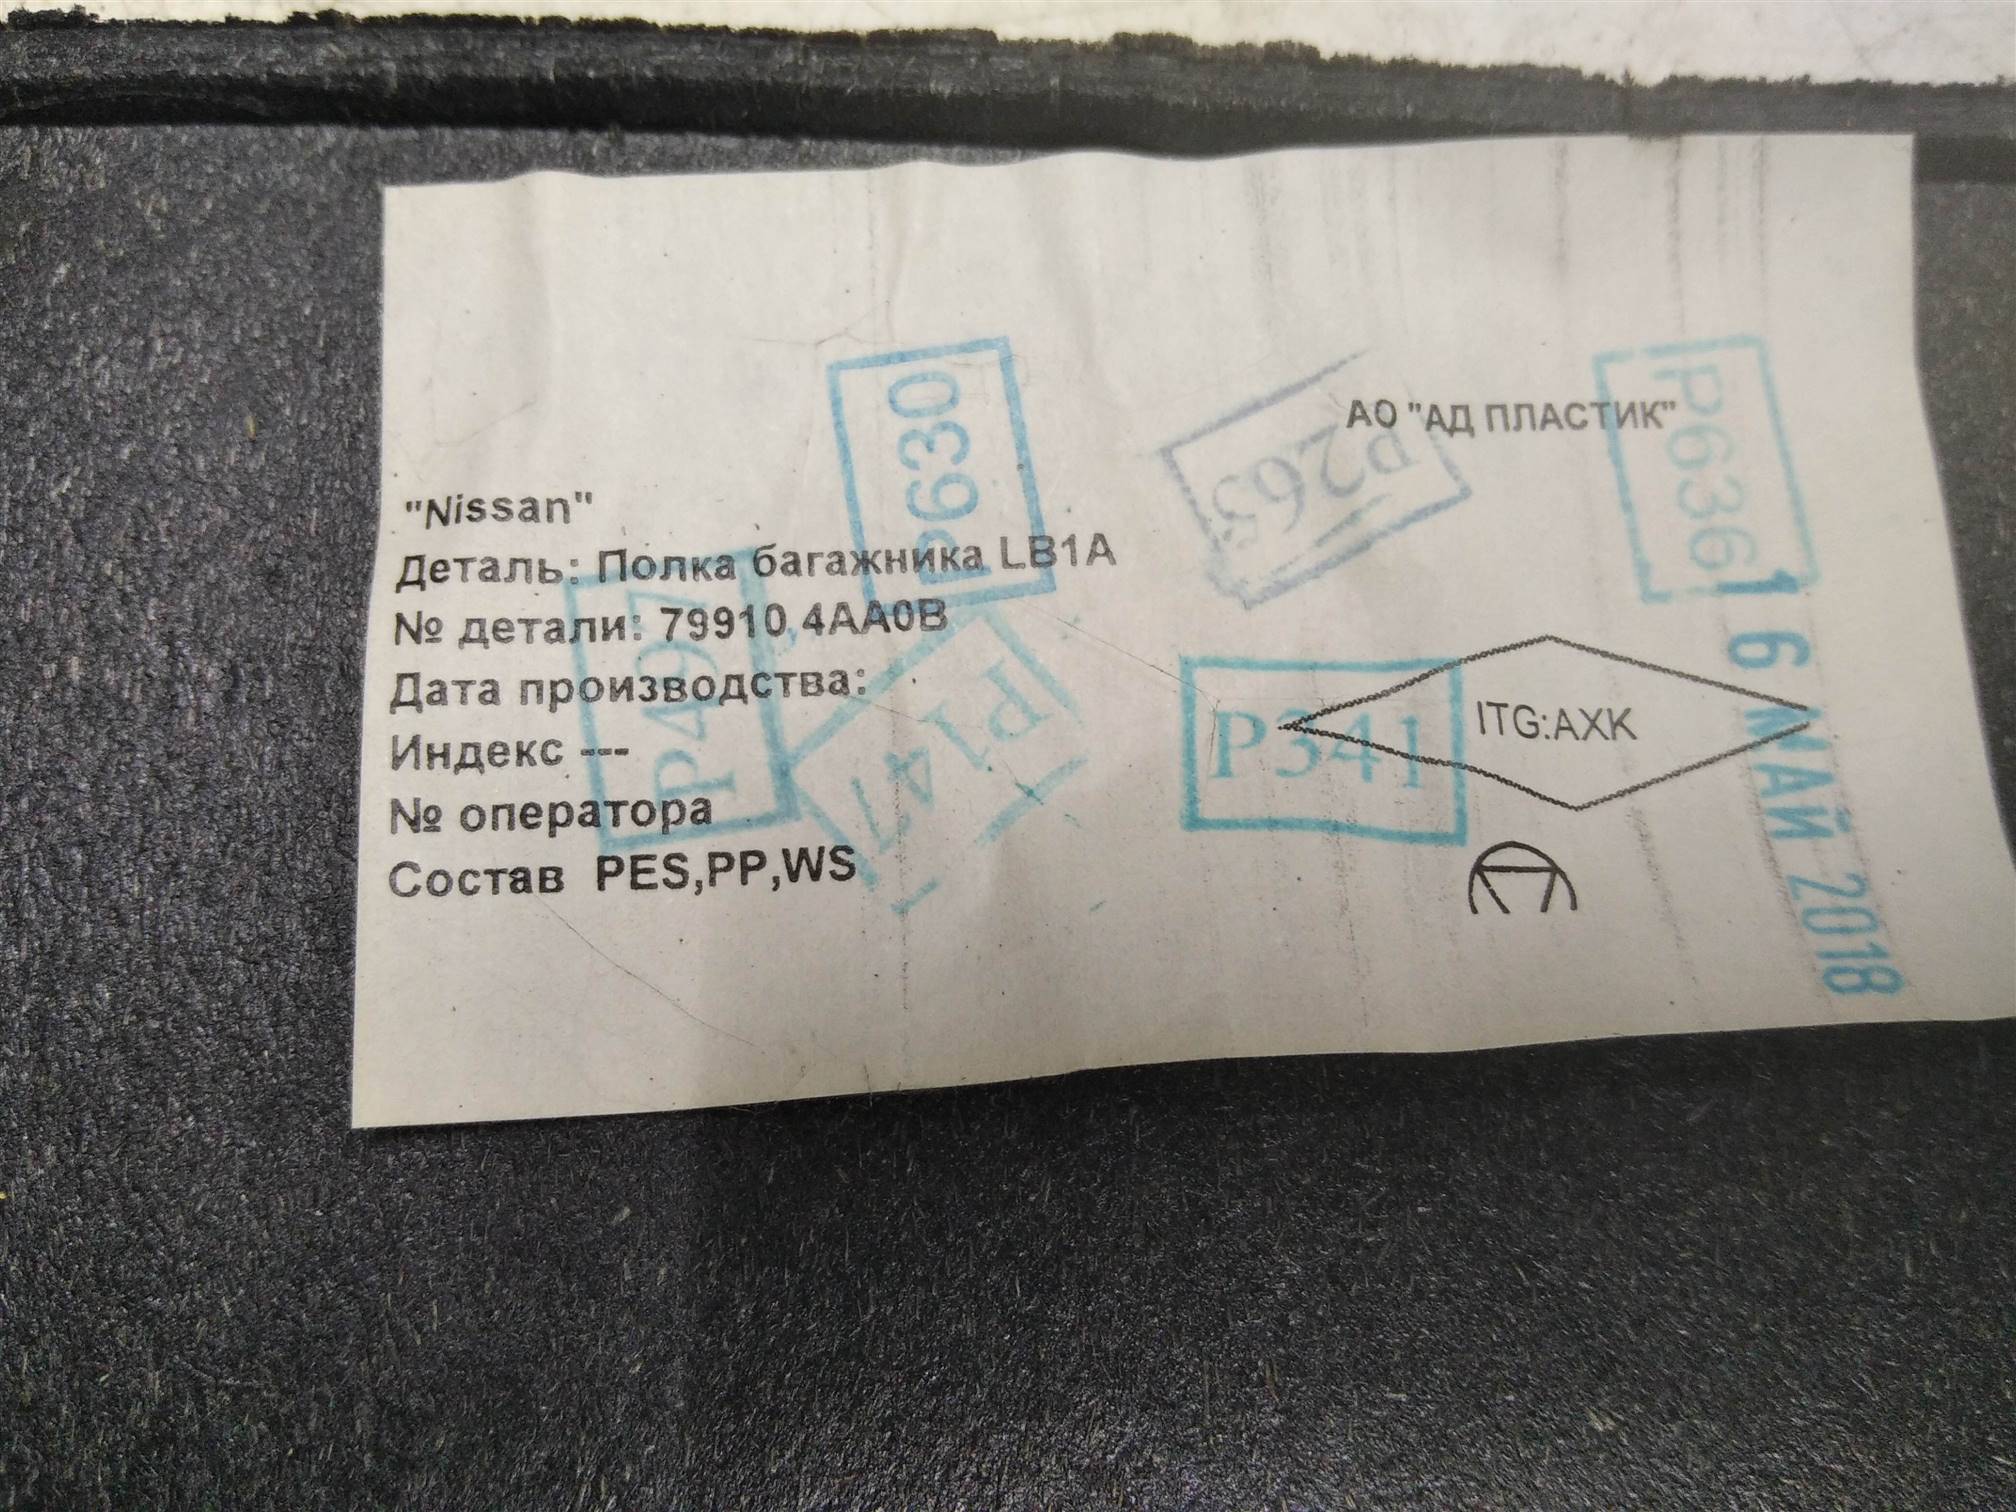 АО "АД ПЛАСТИК"
"Nissan"
Деталь: Полка багажника LB1A
№ детали: 79910 4AA0B
Дата производства:
Индекс ---
№ оператора
Состав PES,PP,WS
ITG:AXK
P630
P265
P636
P497
P147
P341
16 МАЙ 2018